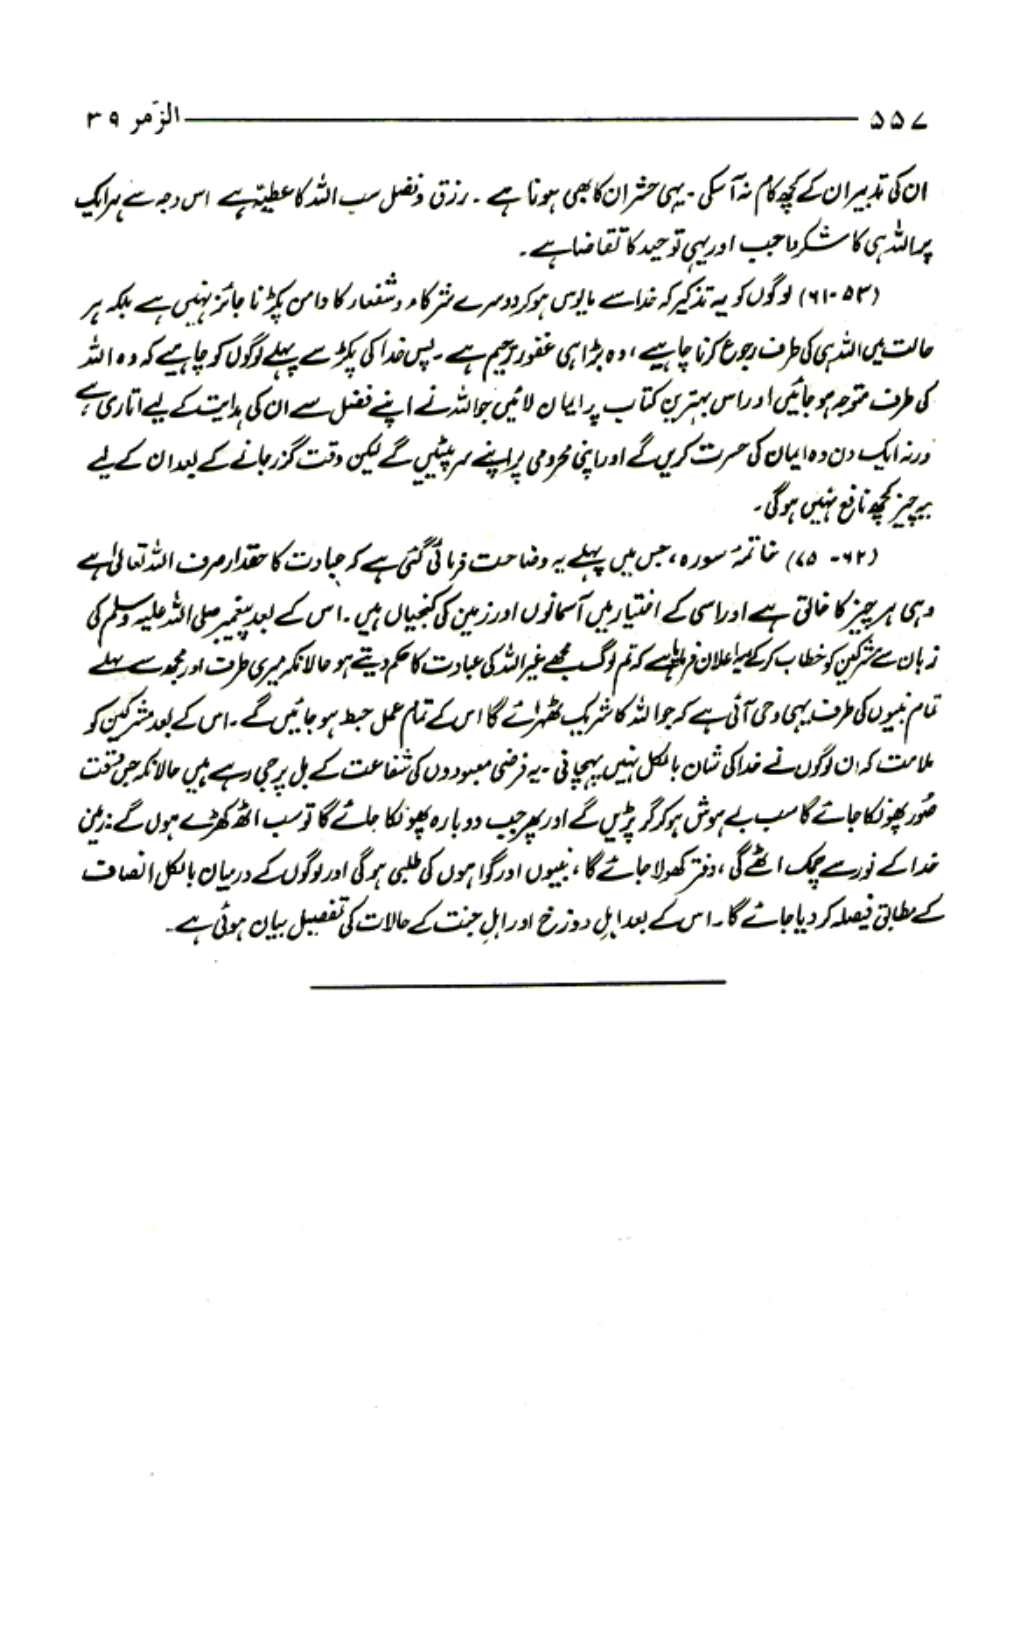 ۵۵۷ ــــــ الزّمر ۳۹
ان کی تدبیر ان کے کچھ کام نہ آ سکی۔ یہی حشر ان کا بھی ہونا ہے۔ رزق و فضل سب اللہ کا عطیّہ ہے اس وجہ سے ہر ایک
پر اللہ ہی کا شکر واجب اور یہی توحید کا تقاضا ہے۔
(۵۳-۶۱) لوگوں کو یہ تذکیر کہ خدا سے مایوس ہو کر دوسرے شرکاء و شفعاء کا دامن پکڑنا جائز نہیں ہے بلکہ ہر
حالت میں اللہ ہی کی طرف رجوع کرنا چاہیے، وہ بڑا ہی غفور رحیم ہے۔ پس خدا کی پکڑ سے پہلے لوگوں کو چاہیے کہ وہ اللہ
کی طرف متوجہ ہو جائیں اور اس بہترین کتاب پر ایمان لائیں جو اللہ نے اپنے فضل سے ان کی ہدایت کے لیے اتاری ہے
ورنہ ایک دن وہ ایمان کی حسرت کریں گے اور اپنی محرومی پر اپنے سر پیٹیں گے لیکن وقت گزر جانے کے بعد ان کے لیے
یہ چیز کچھ نافع نہیں ہو گی۔
(۶۲- ۷۵) خاتمۂ سورہ، جس میں پہلے یہ وضاحت فرمائی گئی ہے کہ عبادت کا حقدار صرف اللہ تعالیٰ ہے
وہی ہر چیز کا خالق ہے اور اسی کے اختیار میں آسمانوں اور زمین کی کنجیاں ہیں۔ اس کے بعد پیغمبر صلی اللہ علیہ وسلم کی
زبان سے مشرکین کو خطاب کر کے یہ اعلان فرمایا ہے کہ تم لوگ مجھے غیر اللہ کی عبادت کا حکم دیتے ہو حالانکہ میری طرف اور مجھ سے پہلے
تمام نبیوں کی طرف یہی وحی آئی ہے کہ جو اللہ کا شریک ٹھہرائے گا اس کے تمام عمل حبط ہو جائیں گے۔ اس کے بعد مشرکین کو
ملامت کہ ان لوگوں نے خدا کی شان بالکل نہیں پہچانی۔ یہ فرضی معبودوں کی شفاعت کے بل پر جی رہے ہیں حالانکہ جس وقت
صُور پھونکا جائے گا سب بے ہوش ہو کر گر پڑیں گے اور پھر جب دوبارہ پھونکا جائے گا تو سب اٹھ کھڑے ہوں گے۔ زمین
خدا کے نور سے چمک اٹھے گی، دفتر کھولا جائے گا، نبیوں اور گواہوں کی طلبی ہو گی اور لوگوں کے درمیان بالکل انصاف
کے مطابق فیصلہ کر دیا جائے گا۔ اس کے بعد اہلِ دوزخ اور اہلِ جنت کے حالات کی تفصیل بیان ہوئی ہے۔